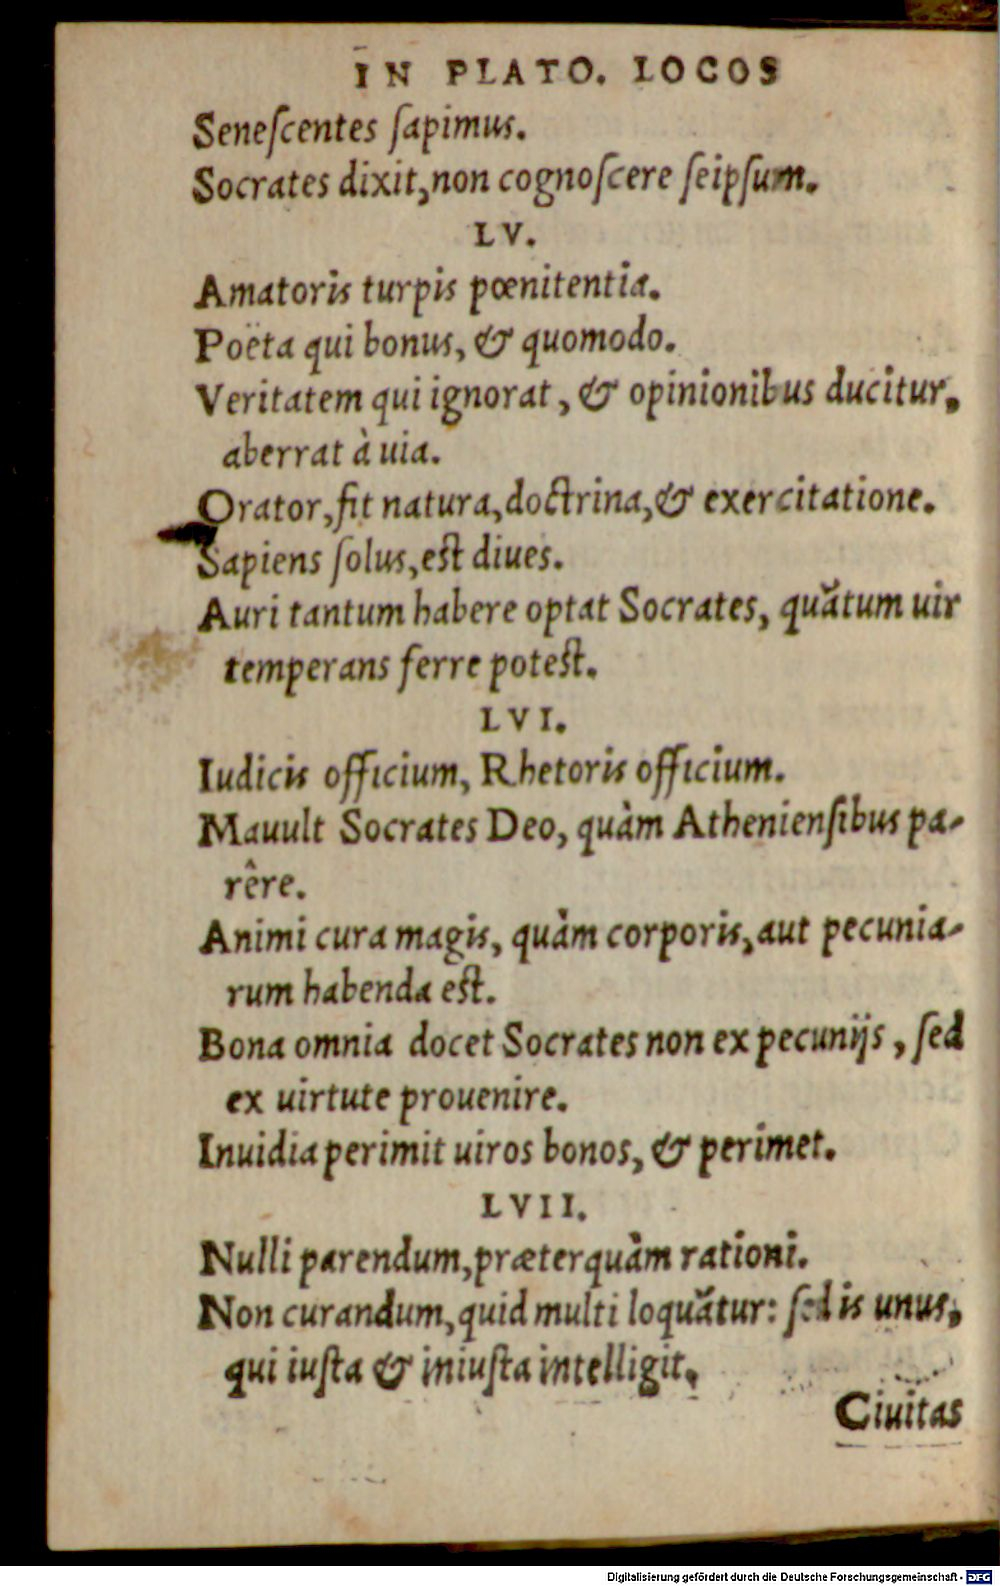 IN PLATO. LOCOS
Seneſcentes ſapimus.
Socrates dixit, non cognoſcere ſeipſum.
LV.
Amatoris turpis pœnitentia.
Poëta qui bonus, & quomodo.
Veritatem qui ignorat, & opinionibus ducitur,
aberrat à uia.
Orator, fit natura, doctrina, & exercitatione.
Sapiens ſolus, eſt diues.
Auri tantum habere optat Socrates, quãtum uir
temperans ferre poteſt.
LVI.
Iudicis officium, Rhetoris officium.
Mauult Socrates Deo, quàm Athenienſibus pa-
rêre.
Animi cura magis, quàm corporis, aut pecunia-
rum habenda eſt.
Bona omnia docet Socrates non ex pecunijs, ſed
ex uirtute prouenire.
Inuidia perimit uiros bonos, & perimet.
LVII.
Nulli parendum, præterquàm rationi.
Non curandum, quid multi loquãtur: ſed is unus,
qui iuſta & iniuſta intelligit.
Ciuitas
Digitalisierung gefördert durch die Deutsche Forschungsgemeinschaft - DFG